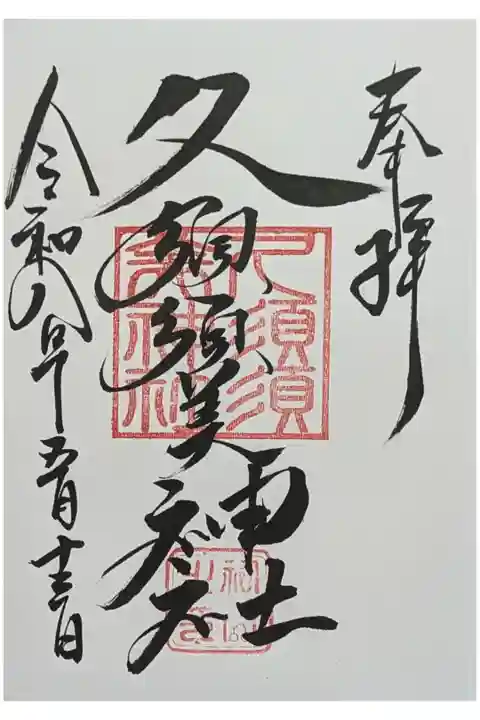 奉拝
久須須美神社
久須須
美神社
令和八年五月十三日